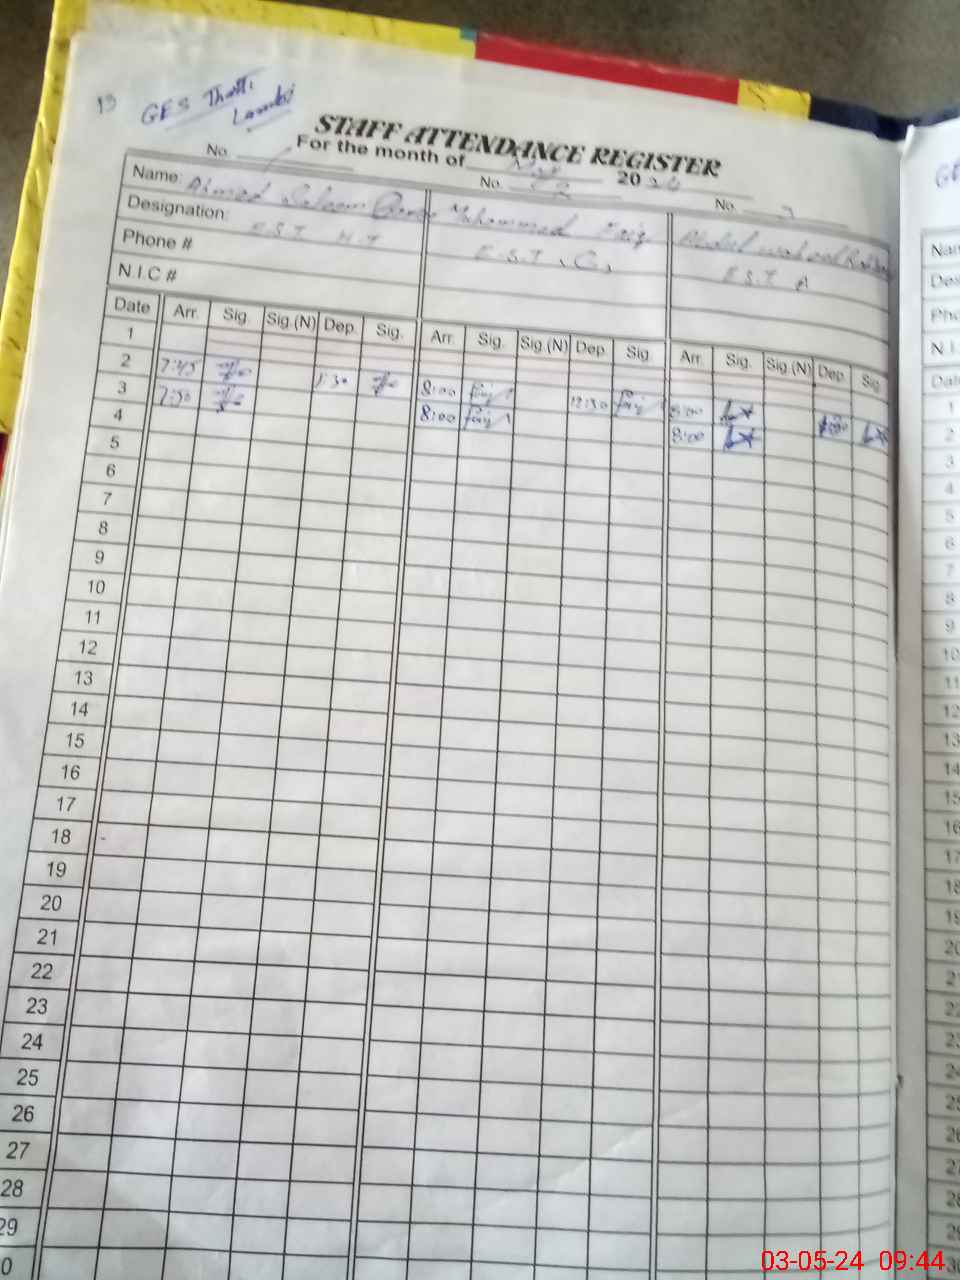 13 GES Thatti
STAFF ATTENDANCE REGISTER
For the month of May 20
No. 1 No. 2 No. 3
Name: Ahmed Saleem Muhammad Faiz Abdul waheed
Designation: E.S.T H.T E.S.T, C, E.S.T A
Phone #
N.I.C #
Date Arr. Sig. Sig.(N) Dep. Sig. Arr. Sig. Sig.(N) Dep Sig. Arr. Sig. Sig.(N) Dep Sig
1
2 7:45 1:30 8:00 Faiz 12:30 Faiz 8:00
3 7:50 8:00 Faiz 8:00
4
5
6
7
8
9
10
11
12
13
14
15
16
17
18
19
20
21
22
23
24
25
26
27
28
29
0
GE
Nan
Des
Pho
N.I.
Date
1
2
3
4
5
6
7
8
9
10
11
12
13
14
15
16
17
18
19
20
21
22
23
24
25
26
27
28
29
03-05-24 09:44